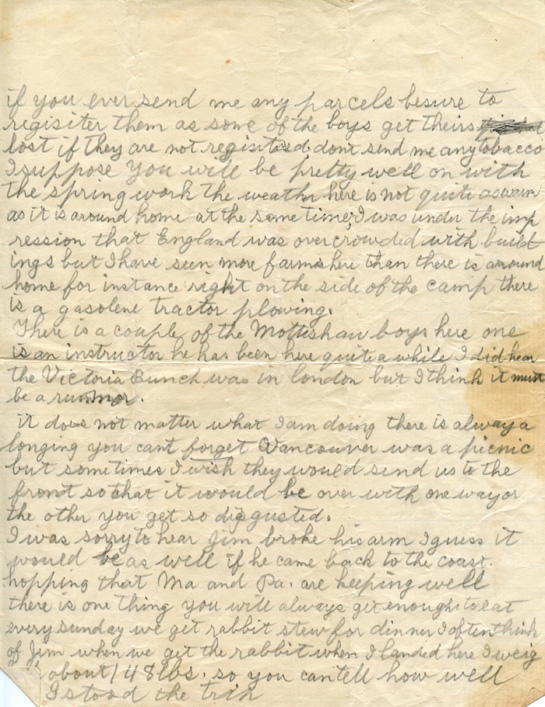 if you ever send me any parcels besure to
regisiter them as some of the boys get theirs
lost if they are not regisited dont send me any tobacco
I suppose you will be pretty well on with
the spring work the weather here is not quite as warm
as it is around home at the same time I was under the imp
ression that England was over crowded with build
ings but I have seen more farms here than there is around
home for instance right on the side of the camp there
is a gasolene tractor plowing.
There is a couple of the Mottishaw boys here one
is an instructor he has been here quite a while I did hear
the Victoria Bunch was in london but I think it must
be a rummor.
it does not matter what I am doing there is alway a
longing you cant forget Vancouver was a picnic
but sometimes I wish they would send us to the
front so that it would be over with one way or
the other you get so disgusted.
I was sorry to hear Jim broke his arm I guess it
would be as well if he came back to the coast.
hopping that Ma and Pa. are keeping well
there is one thing you will always get enough to eat
every sunday we get rabbit stew for dinner I often think
of Jim when we get the rabbit when I landed here I weig
about 148 lbs. so you can tell how well
I stood the trip